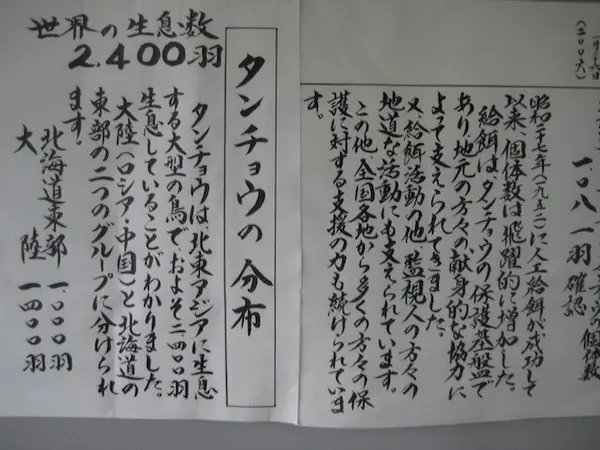 (二〇〇六)
一.〇八一羽確認
昭和二七年(一九五二)に人工給餌が成功して
以来、個体数は飛躍的に増加した。
給餌は、タンチョウの保護基盤で
あり、地元の方々の、献身的な協力に
よって支えられてきました。
又、給餌活動の他、監視人の方々の
地道な活動にも支えられています。
この他、全国各地から多くの方々の保
護に対する支援の力も続けられていま
す。
タンチョウの分布
世界の生息数
2.400羽
タンチョウは、北東アジアに生息
する大型の鳥で、およそ二四〇〇羽
生息していることがわかりました。
大陸(ロシア・中国)と北海道の
東部の二つのグループに分けられ
ます。
北海道東部 一〇〇〇羽
大陸 一四〇〇羽